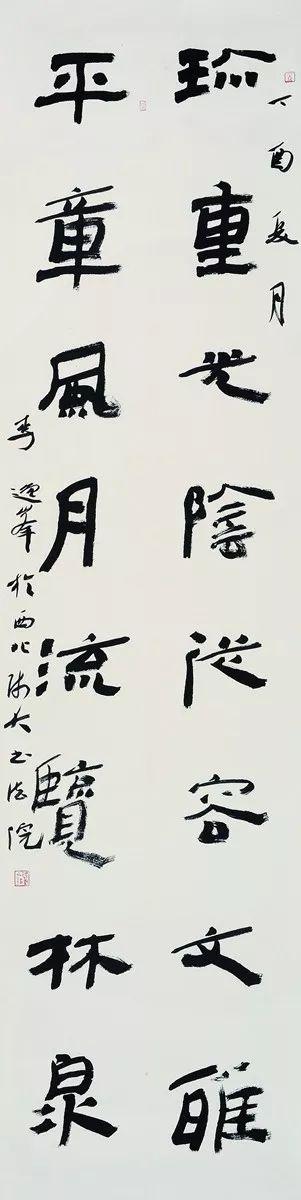 丁酉夏月
珍重光陰從容文雅
平章風月流覽林泉
李逸峰於西北师大书法院